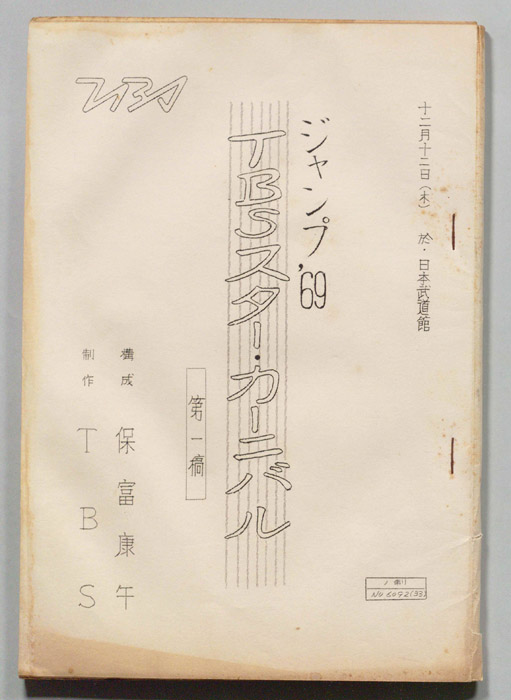 十二月十二日(木) 於・日本武道館
ジャンプ'69
TBSスター・カーニバル
第一稿
構成 保富康午
制作 TBS
TBS
No 6092(33)